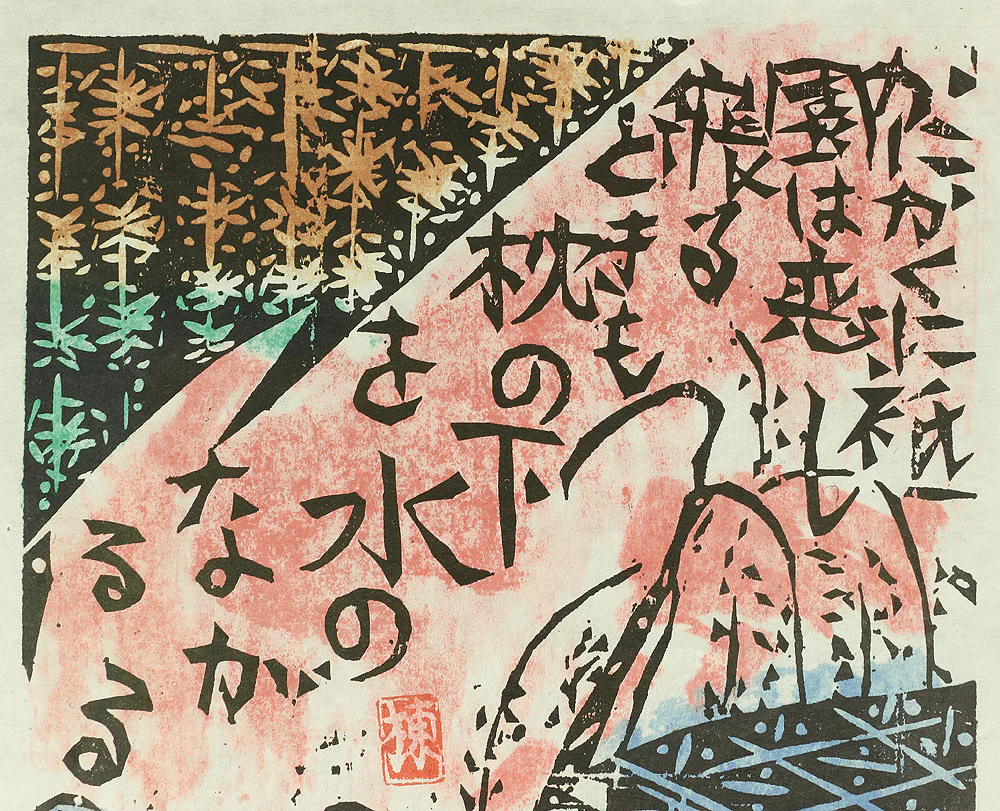 かにかくに祇
園は恋し
寝る
ときも
枕の下
を水の
なが
るる
棟